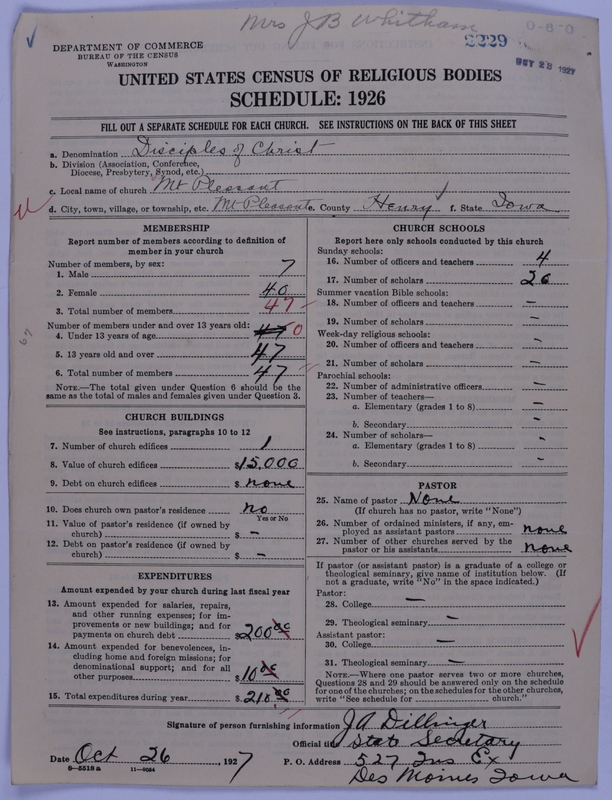 Mrs J B Whitham
2229
0-8-0
OCT 28 1927
DEPARTMENT OF COMMERCE
BUREAU OF THE CENSUS
WASHINGTON
UNITED STATES CENSUS OF RELIGIOUS BODIES
SCHEDULE: 1926
FILL OUT A SEPARATE SCHEDULE FOR EACH CHURCH. SEE INSTRUCTIONS ON THE BACK OF THIS SHEET
a. Denomination Disciples of Christ
b. Division (Association, Conference,
Diocese, Presbytery, Synod, etc.)
c. Local name of church Mt Pleasant
d. City, town, village, or township, etc. Mt Pleasant e. County Henry f. State Iowa
MEMBERSHIP
Report number of members according to definition of
member in your church
Number of members, by sex:
1. Male 7
2. Female 40
3. Total number of members 47
Number of members under and over 13 years old:
4. Under 13 years of age 47 0
5. 13 years old and over 47
6. Total number of members 47
NOTE.—The total given under Question 6 should be the
same as the total of males and females given under Question 3.
67
CHURCH BUILDINGS
See instructions, paragraphs 10 to 12
7. Number of church edifices 1
8. Value of church edifices $15,000
9. Debt on church edifices $ none
10. Does church own pastor's residence no
Yes or No
11. Value of pastor's residence (if owned by
church) $ —
12. Debt on pastor's residence (if owned by
church) $ —
EXPENDITURES
Amount expended by your church during last fiscal year
13. Amount expended for salaries, repairs,
and other running expenses; for im-
provements or new buildings; and for
payments on church debt $200 00
14. Amount expended for benevolences, in-
cluding home and foreign missions; for
denominational support; and for all
other purposes $10 00
15. Total expenditures during year $210 00
CHURCH SCHOOLS
Report here only schools conducted by this church
Sunday schools:
16. Number of officers and teachers 4
17. Number of scholars 26
Summer vacation Bible schools:
18. Number of officers and teachers —
19. Number of scholars —
Week-day religious schools:
20. Number of officers and teachers —
21. Number of scholars —
Parochial schools:
22. Number of administrative officers —
23. Number of teachers—
a. Elementary (grades 1 to 8) —
b. Secondary —
24. Number of scholars—
a. Elementary (grades 1 to 8) —
b. Secondary —
PASTOR
25. Name of pastor None
(If church has no pastor, write "None")
26. Number of ordained ministers, if any, em-
ployed as assistant pastors none
27. Number of other churches served by the
pastor or his assistants none
If pastor (or assistant pastor) is a graduate of a college or
theological seminary, give name of institution below. (If
not a graduate, write "No" in the space indicated.)
Pastor:
28. College —
29. Theological seminary —
Assistant pastor:
30. College —
31. Theological seminary —
NOTE.—Where one pastor serves two or more churches,
Questions 28 and 29 should be answered only on the schedule
for one of the churches; on the schedules for the other churches,
write "See schedule for church."
Signature of person furnishing information J A Dillinger
Official title Stat Secretary
Date Oct 26, 1927 P. O. Address 527 Ins Ex
Des Moines Iowa
8—5518 a 11—9084